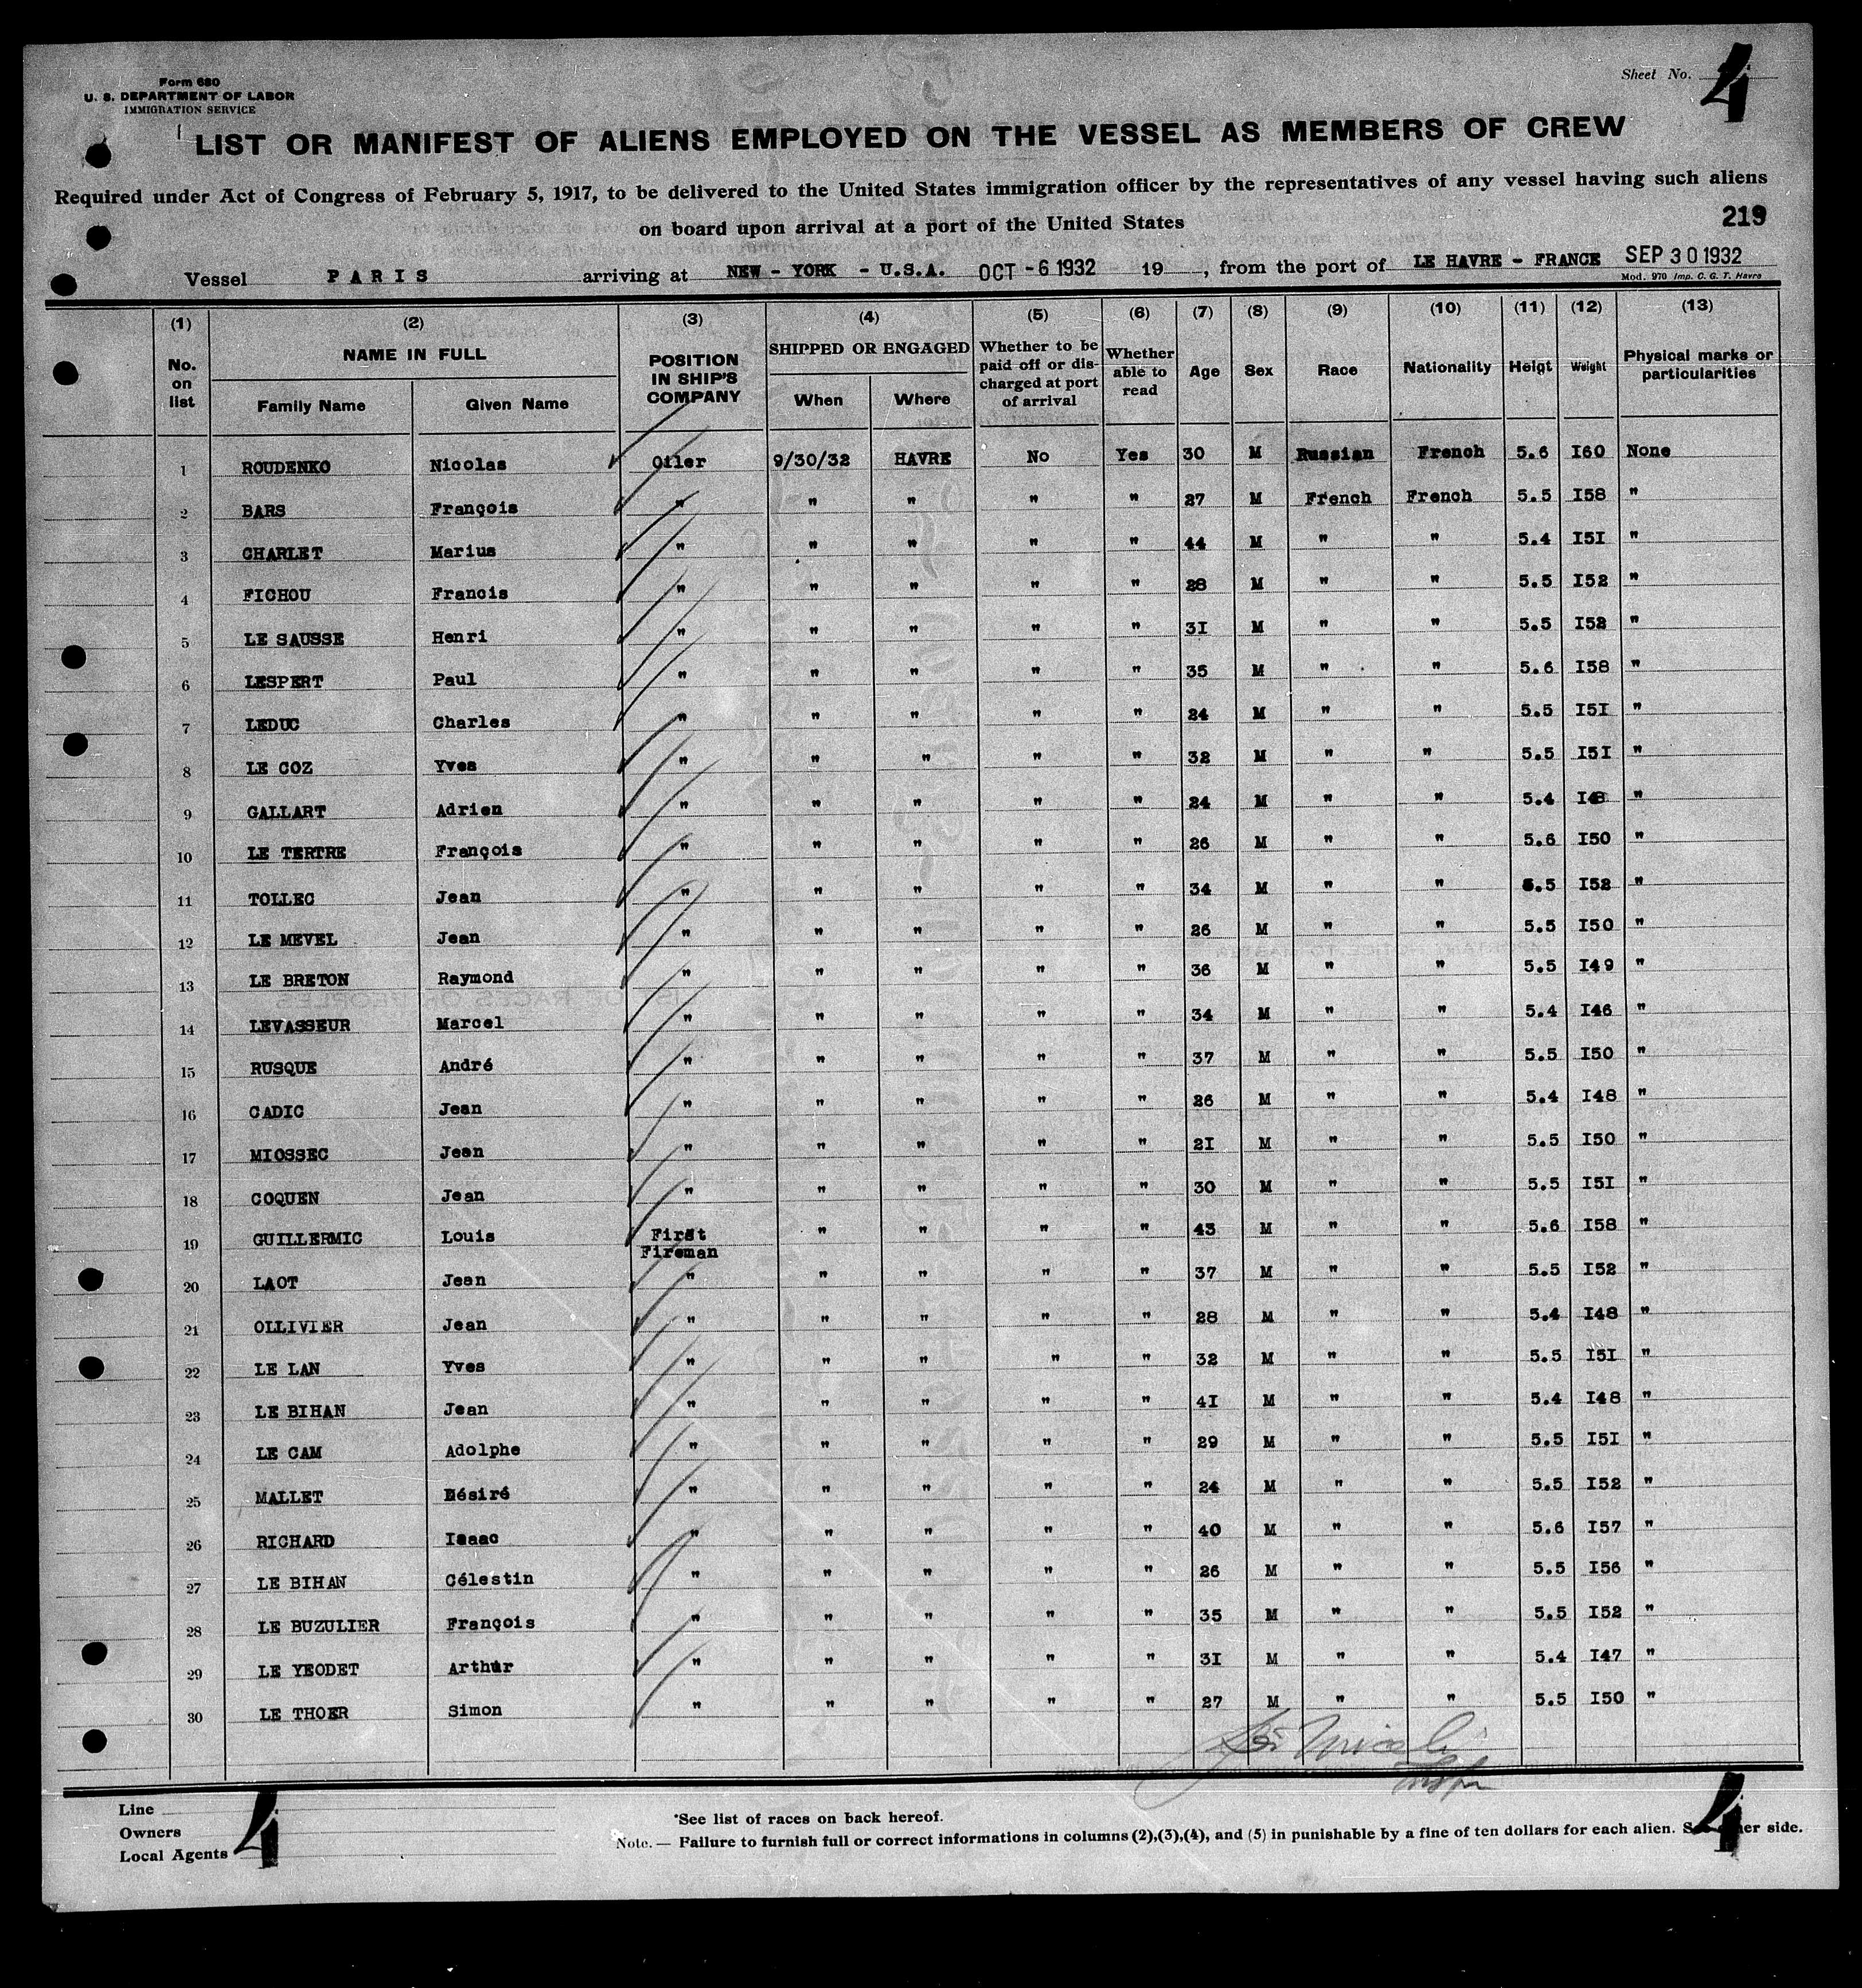 Form 680
U. S. DEPARTMENT OF LABOR
IMMIGRATION SERVICE
Sheet No. 4
LIST OR MANIFEST OF ALIENS EMPLOYED ON THE VESSEL AS MEMBERS OF CREW
Required under Act of Congress of February 5, 1917, to be delivered to the United States immigration officer by the representatives of any vessel having such aliens
on board upon arrival at a port of the United States
219
Vessel PARIS arriving at NEW - YORK - U.S.A. OCT -6 1932 19 , from the port of LE HAVRE - FRANCE SEP 30 1932
Mod. 970 Imp. C. G. T. Havre
(1) (2) (3) (4) (5) (6) (7) (8) (9) (10) (11) (12) (13)
No. on list NAME IN FULL Family Name Given Name POSITION IN SHIP'S COMPANY SHIPPED OR ENGAGED When Where Whether to be paid off or discharged at port of arrival Whether able to read Age Sex Race Nationality Heigt Weight Physical marks or particularities
1 ROUDENKO Nicolas Oiler 9/30/32 HAVRE No Yes 30 M Russian French 5.6 I60 None
2 BARS François " " " " " 27 M French French 5.5 I58 "
3 CHARLET Marius " " " " " 44 M " " 5.4 I5I "
4 FICHOU Francis " " " " " 28 M " " 5.5 I52 "
5 LE SAUSSE Henri " " " " " 3I M " " 5.5 I52 "
6 LESPERT Paul " " " " " 35 M " " 5.6 I58 "
7 LEDUC Charles " " " " " 24 M " " 5.5 I5I "
8 LE COZ Yves " " " " " 32 M " " 5.5 I5I "
9 GALLART Adrien " " " " " 24 M " " 5.4 I48 "
10 LE TERTRE François " " " " " 26 M " " 5.6 I50 "
11 TOLLEC Jean " " " " " 34 M " " 5.5 I52 "
12 LE MEVEL Jean " " " " " 26 M " " 5.5 I50 "
13 LE BRETON Raymond " " " " " 36 M " " 5.5 I49 "
14 LEVASSEUR Marcel " " " " " 34 M " " 5.4 I46 "
15 RUSQUE André " " " " " 37 M " " 5.5 I50 "
16 CADIC Jean " " " " " 26 M " " 5.4 I48 "
17 MIOSSEC Jean " " " " " 2I M " " 5.5 I50 "
18 COQUEN Jean " " " " " 30 M " " 5.5 I5I "
19 GUILLERMIC Louis First Fireman " " " " 43 M " " 5.6 I58 "
20 LAOT Jean " " " " " 37 M " " 5.5 I52 "
21 OLLIVIER Jean " " " " " 28 M " " 5.4 I48 "
22 LE LAN Yves " " " " " 32 M " " 5.5 I5I "
23 LE BIHAN Jean " " " " " 4I M " " 5.4 I48 "
24 LE CAM Adolphe " " " " " 29 M " " 5.5 I5I "
25 MALLET Désiré " " " " " 24 M " " 5.5 I52 "
26 RICHARD Isaac " " " " " 40 M " " 5.6 I57 "
27 LE BIHAN Célestin " " " " " 26 M " " 5.5 I56 "
28 LE BUZULIER François " " " " " 35 M " " 5.5 I52 "
29 LE YEODET Arthur " " " " " 3I M " " 5.4 I47 "
30 LE THOER Simon " " " " " 27 M " " 5.5 I50 "
Line
Owners
Local Agents
4
*See list of races on back hereof.
Note. — Failure to furnish full or correct informations in columns (2),(3),(4), and (5) in punishable by a fine of ten dollars for each alien. side.
4